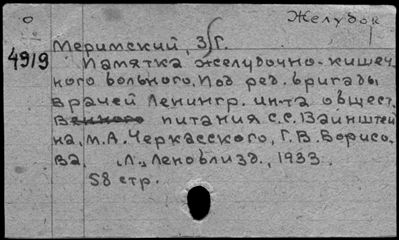 Желудок
Меримский, З. Г.
4919
Памятка желудочно-кишеч
ного больного. Под ред. бригады
врачей Ленингр. ин-та общест.
венного питания С.С. Вайнштей
на, М.А. Черкасского, Г.В. Борисо.
ва Л., Леноблизд., 1933.
58 стр.